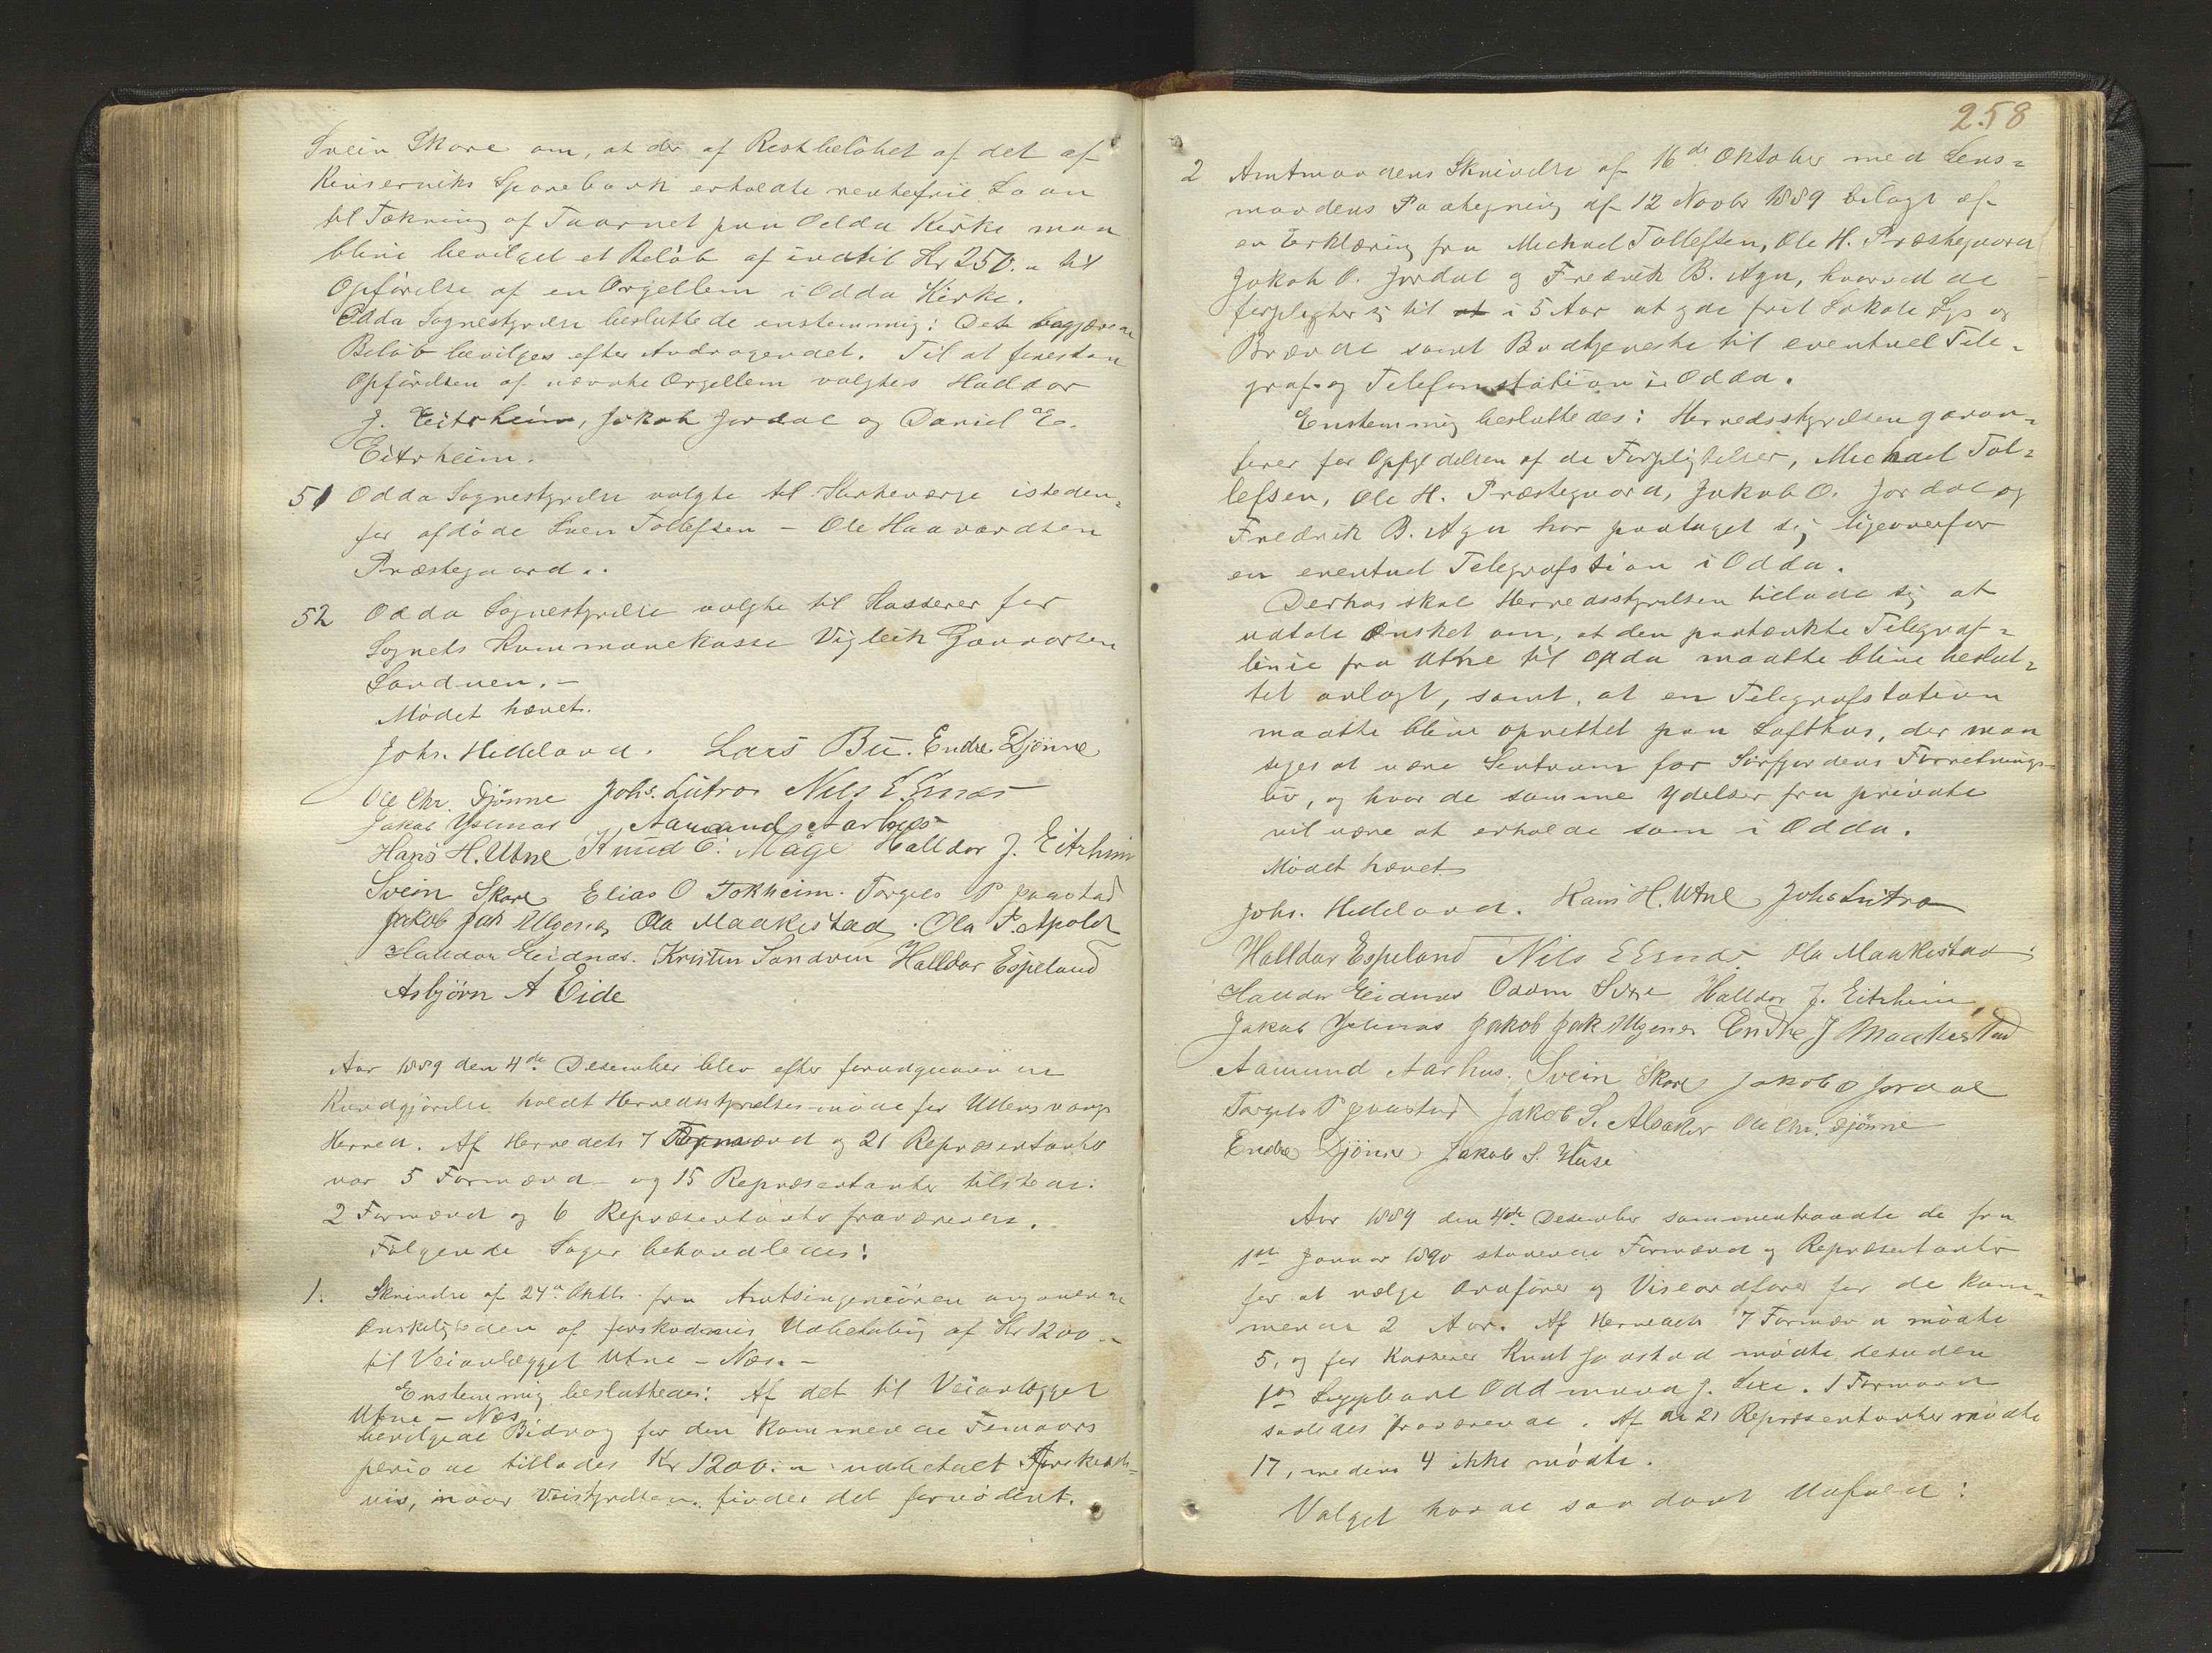 Svein Skare om, at der af Restbeløbet af det af
Kinserviks Sparebank erholdte rentefrie Laan
til Tækning af Taarnet paa Odda Kirke maa
blive bevilget et Beløb af indtil Kr 250.„ til
Opførelse af en Orgellem i Odda Kirke.
Odda Sognestyrelse besluttede enstemmig: Det begjærede
Beløb bevilges efter Andragendet. Til at forestaa
Opførelsen af nævnte Orgellem valgtes Haldor
J. Eitrheim, Jakob Jordal og Daniel E.
Eitrheim.
51 Odda Sognestyrelse valgte til Kirkeværge isteden=
for afdøde Sven Tollefsen – Ole Haavardsen
Præstegaard..
52 Odda Sognestyrelse valgte til Kasserer for
Sognets Kommunekasse Vigleik
Sandven. –
Mødet hævet.
Johs. Hedeland. Lars Bu. Endre Djönne
Ole Chr. Djønne Johs. Lutro Nils E. Ernæs
Jakob Ystenæs Aamund Aarhus
Hans H. Utne Knud E. Måge Halldor J. Eitrheim
Svein Skare Elias O Tokheim. Torgels P Jaastad
Jakob Jak Ullgenes Ola Maakestad. Ola P. Apold
Halldor Eidnæs. Kristen Sandven Halldor Espeland
Asbjörn A Eide
Aar 1889 den 4de Desember blev efter forudgaaende
Kundgjørelse holdt Herredsstyrelsesmøde for Ullensvangs
Herred. Af Herredets 7 Formænd og 21 Repræsentanter
var 5 Formænd og 15 Repræsentanter tilstede.
2 Formænd og 6 Repræsentanter fraværende.
Følgende Sager behandledes:
1. Skrivelse af 24de Oktbr. fra Amtsingeniøren angaaende
Ønskeligheden af forskudsvis Udbetaling af Kr 1200.„
til Veianlægget Utne – Næs. –
Enstemmig besluttedes: Af det til Veianlægget
Utne – Næs
bevilgede Bidrag for den kommende Femaars
periode tillades Kr 1200.„ udbetalt forskuds=
vis, naar Veistyrelsen finder det fornødent.
258
2 Amtmandens Skrivelse af 16de Oktober med Lens=
mandens Paategning af 12 Novbr 1889 bilagt af
en Erklæring fra Michael Tollefsen, Ole H. Præstegaard
Jakob O. Jordal og Fredrik B. Aga, hvorved de
forpligter sig til at i 5 Aar at yde frit Lokale Lys og
Brænde samt Budtjeneste til eventuel Tele=
graf- og Telefonstation i Odda.
Enstemmig besluttedes: Herredsstyrelsen garan=
terer for Opfyldelsen af de Forpligtelser, Michael Tol=
lefsen, Ole H. Præstegaard, Jakob O. Jordal og
Fredrik B. Aga har paataget sig ligeoverfor
en eventuel Telegrafstion i Odda.
Derhos skal Herredsstyrelsen tillade sig at
udtale Ønsket om, at den paatænkte Telegraf=
linie fra Utne til Odda maatte blive beslut=
tet anlagt, samt, at en Telegrafstation
maatte blive oprettet paa Lofthus, der maa
siges at være Sentrum for Sørfjordens Forretnings=
liv, og hvor de samme Ydelser fra private
vil være at erholde som i Odda.
Mødet hævet
Johs. Hedeland. Hans H. Utne Johs Lutro
Halldor Espeland Nils E Ernæs Ola Maakestad
Halldor Eidnæs Oddm Sexe Halldor J. Eitrheim
Jakob Ystenæs Jakob Jak Ullgenes Endre J Maakestad
Aamund Aarhus. Svein Skare Jakob O Jordal
Torgels P Jaastad Jakob S. Alsaker Ole Chr. Djønne
Endre Djönne Jakob S. Huse
Aar 1889 den 4de Desember sammentraadte de fra
1ste Januar 1890 staaende Formænd og Repræsentanter
for at vælge Ordfører og Viseordfører for de kom=
mende 2 Aar. Af Herredets 7 Formænd mødte
5, og for Kasserer Knut Jaastad mødte desuden
1ste Suppleant Oddmund J. Sexe. 1 Formand
saaledes fraværende. Af de 21 Repræsentanter mødte
17, medens 4 ikke mødte.
Valget havde saadant Udfald: